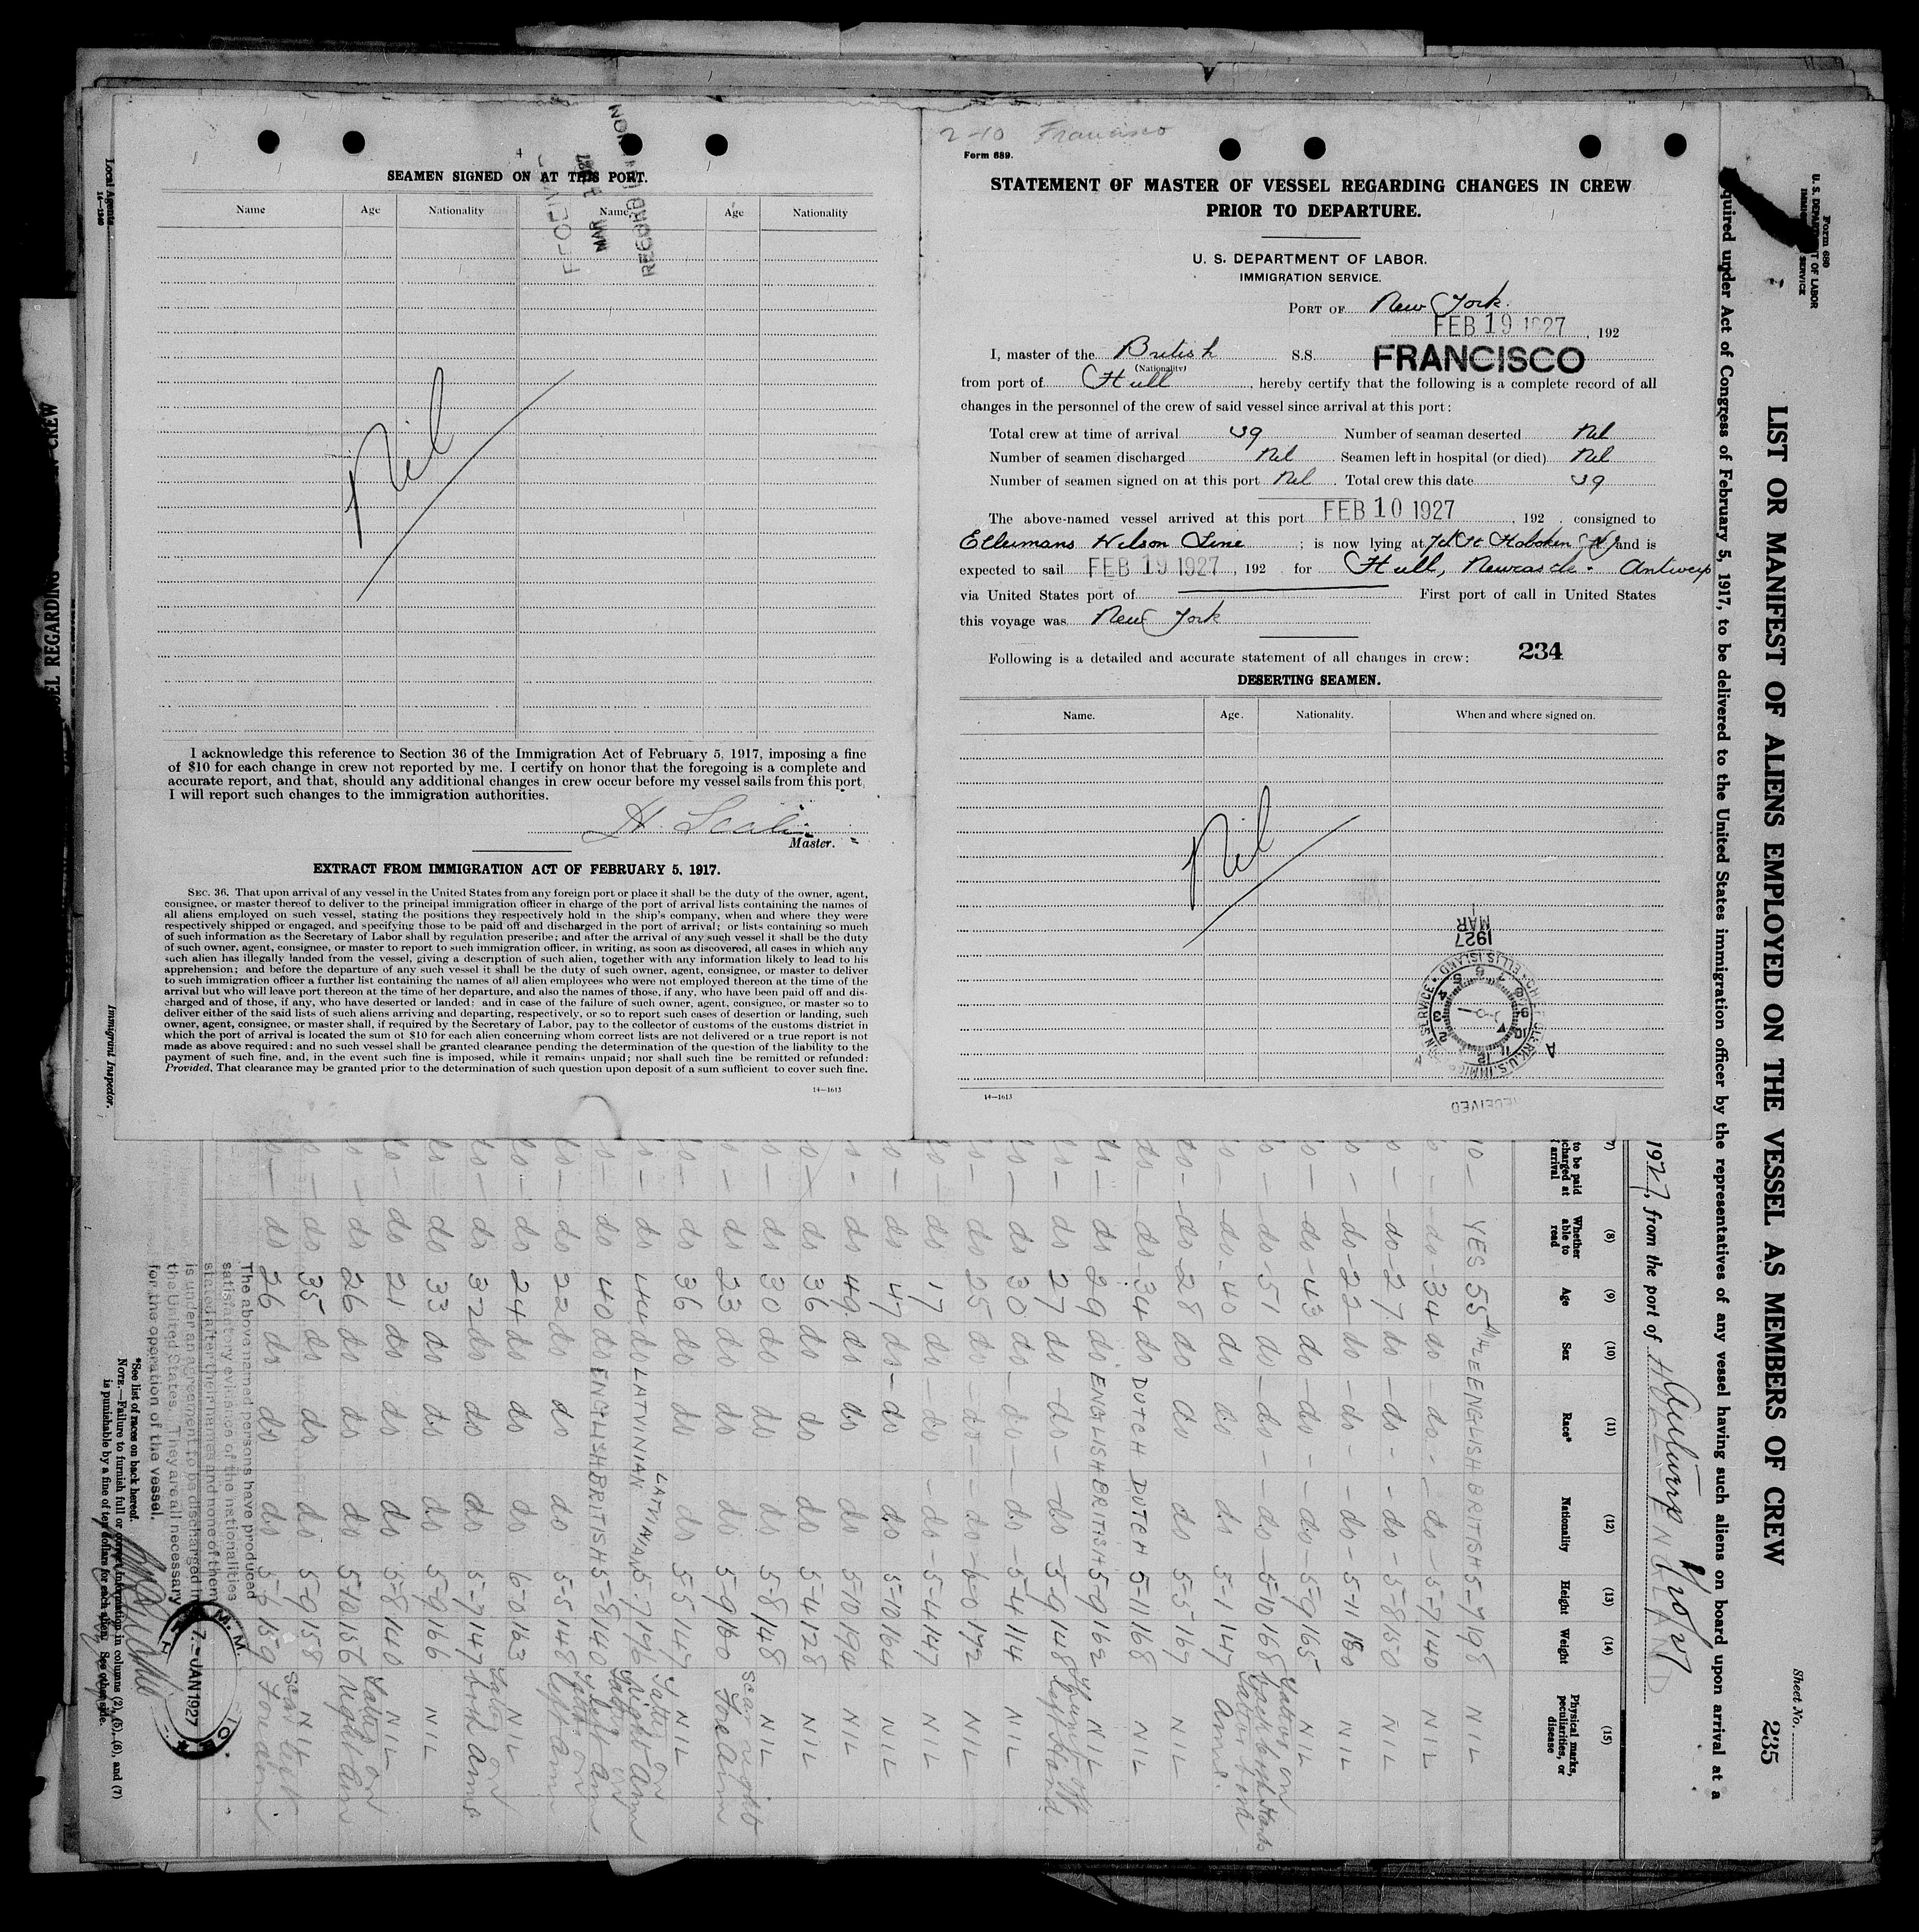 SEAMEN SIGNED ON AT THIS PORT.
Name Age Nationality Name Age Nationality
MAR
RECORD
Nil
I acknowledge this reference to Section 36 of the Immigration Act of February 5, 1917, imposing a fine
of $10 for each change in crew not reported by me. I certify on honor that the foregoing is a complete and
accurate report, and that, should any additional changes in crew occur before my vessel sails from this port,
I will report such changes to the immigration authorities.
H.
Master.
EXTRACT FROM IMMIGRATION ACT OF FEBRUARY 5, 1917.
SEC. 36. That upon arrival of any vessel in the United States from any foreign port or place it shall be the duty of the owner, agent,
consignee, or master thereof to deliver to the principal immigration officer in charge of the port of arrival lists containing the names of
all aliens employed on such vessel, stating the positions they respectively hold in the ship's company, when and where they were
respectively shipped or engaged, and specifying those to be paid off and discharged in the port of arrival; or lists containing so much
of such information as the Secretary of Labor shall by regulation prescribe; and after the arrival of any such vessel it shall be the duty
of such owner, agent, consignee, or master to report to such immigration officer, in writing, as soon as discovered, all cases in which any
such alien has illegally landed from the vessel, giving a description of such alien, together with any information likely to lead to his
apprehension; and before the departure of any such vessel it shall be the duty of such owner, agent, consignee, or master to deliver
to such immigration officer a further list containing the names of all alien employees who were not employed thereon at the time of the
arrival but who will leave port thereon at the time of her departure, and also the names of those, if any, who have been paid off and dis-
charged and of those, if any, who have deserted or landed; and in case of the failure of such owner, agent, consignee, or master so to
deliver either of the said lists of such aliens arriving and departing, respectively, or so to report such cases of desertion or landing, such
owner, agent, consignee, or master shall, if required by the Secretary of Labor, pay to the collector of customs of the customs district in
which the port of arrival is located the sum of $10 for each alien concerning whom correct lists are not delivered or a true report is not
made as above required; and no such vessel shall be granted clearance pending the determination of the question of the liability to the
payment of such fine, and, in the event such fine is imposed, while it remains unpaid; nor shall such fine be remitted or refunded:
Provided, That clearance may be granted prior to the determination of such question upon deposit of a sum sufficient to cover such fine.
14—1613
2-10 Francisco
Form 689.
STATEMENT OF MASTER OF VESSEL REGARDING CHANGES IN CREW
PRIOR TO DEPARTURE.
U. S. DEPARTMENT OF LABOR.
IMMIGRATION SERVICE.
PORT OF New York.
FEB 19 1927, 192
I, master of the British S.S. FRANCISCO
(Nationality)
from port of Hull, hereby certify that the following is a complete record of all
changes in the personnel of the crew of said vessel since arrival at this port:
Total crew at time of arrival 39 Number of seaman deserted Nil
Number of seamen discharged Nil. Seamen left in hospital (or died) Nil
Number of seamen signed on at this port Nil. Total crew this date 39
The above-named vessel arrived at this port FEB 10 1927, 192 consigned to
Ellermans Wilson Line; is now lying at 7th St Hoboken NJ and is
expected to sail FEB 19 1927, 192 for Hull, Newcastle. Antwerp
via United States port of First port of call in United States
this voyage was New York
Following is a detailed and accurate statement of all changes in crew: 234
DESERTING SEAMEN.
Name. Age. Nationality. When and where signed on.
Nil
MAR
1927
RECEIVED
14—1613
Form 680
U. S. DEPARTMENT OF LABOR
SERVICE
Sheet No. 235
LIST OR MANIFEST OF ALIENS EMPLOYED ON THE VESSEL AS MEMBERS OF CREW
quired under Act of Congress of February 5, 1917, to be delivered to the United States immigration officer by the representatives of any vessel having such aliens on board upon arrival at a
1927, from the port of
(7) (8) (9) (10) (11) (12) (13) (14) (15)
to be paid Whether able to read Age Sex Race* Nationality Height Weight Physical marks, peculiarities, or disease
YES 55 MALE ENGLISH BRITISH 5-7 198 NIL
do 34 do do do 5-7 140 NIL
do 27 do do do 5-8 150 NIL
do 22 do do do 5-11 180 NIL
do 43 do do do 5-9 165 NIL
do 51 do do do 5-10 168
do 40 do do do 5-1 147
do 28 do do do 5-5 167 NIL
do 34 do DUTCH DUTCH 5-11 168 NIL
do 29 do ENGLISH BRITISH 5-9 162 NIL
do 27 do do do 5-9 148
do 30 do do do 5-4 114 NIL
do 25 do do do 6-0 172 NIL
do 17 do do do 5-4 147 NIL
do 47 do do do 5-10 164 NIL
do 49 do do do 5-10 194 NIL
do 36 do do do 5-4 128 NIL
do 30 do do do 5-8 148 NIL
do 23 do do do 5-9 160 Scar right Forearm
do 36 do do do 5-5 147 NIL
do 44 do LATVINIAN LATVINIAN 5-7 196 Tattoo on Right Arm
do 40 do ENGLISH BRITISH 5-8 140
do 22 do do do 5-5 148
do 24 do do do 6-0 163 NIL
do 32 do do do 5-7 147
do 33 do do do 5-9 166 NIL
do 21 do do do 5-8 140 NIL
do 26 do do do 5-10 156 Tattoo on Right Arm
do 35 do do do 5-9 158 NIL
do 26 do do do 159 Scar left Forearm
The above named persons have produced
satisfactory evidence of the nationalities
stated after their names and none of them
is under an agreement to be discharged in
the United States. They are all necessary
for the operation of the vessel.
*See list of races on back hereof.
NOTE.—Failure to furnish full or correct information in columns (2), (5), (6), and (7)
is punishable by a fine of ten dollars for each alien. See other side.
7-JAN 1927
Local Agents
14—1240
Immigrant Inspector.
SEL REGARDING CREW